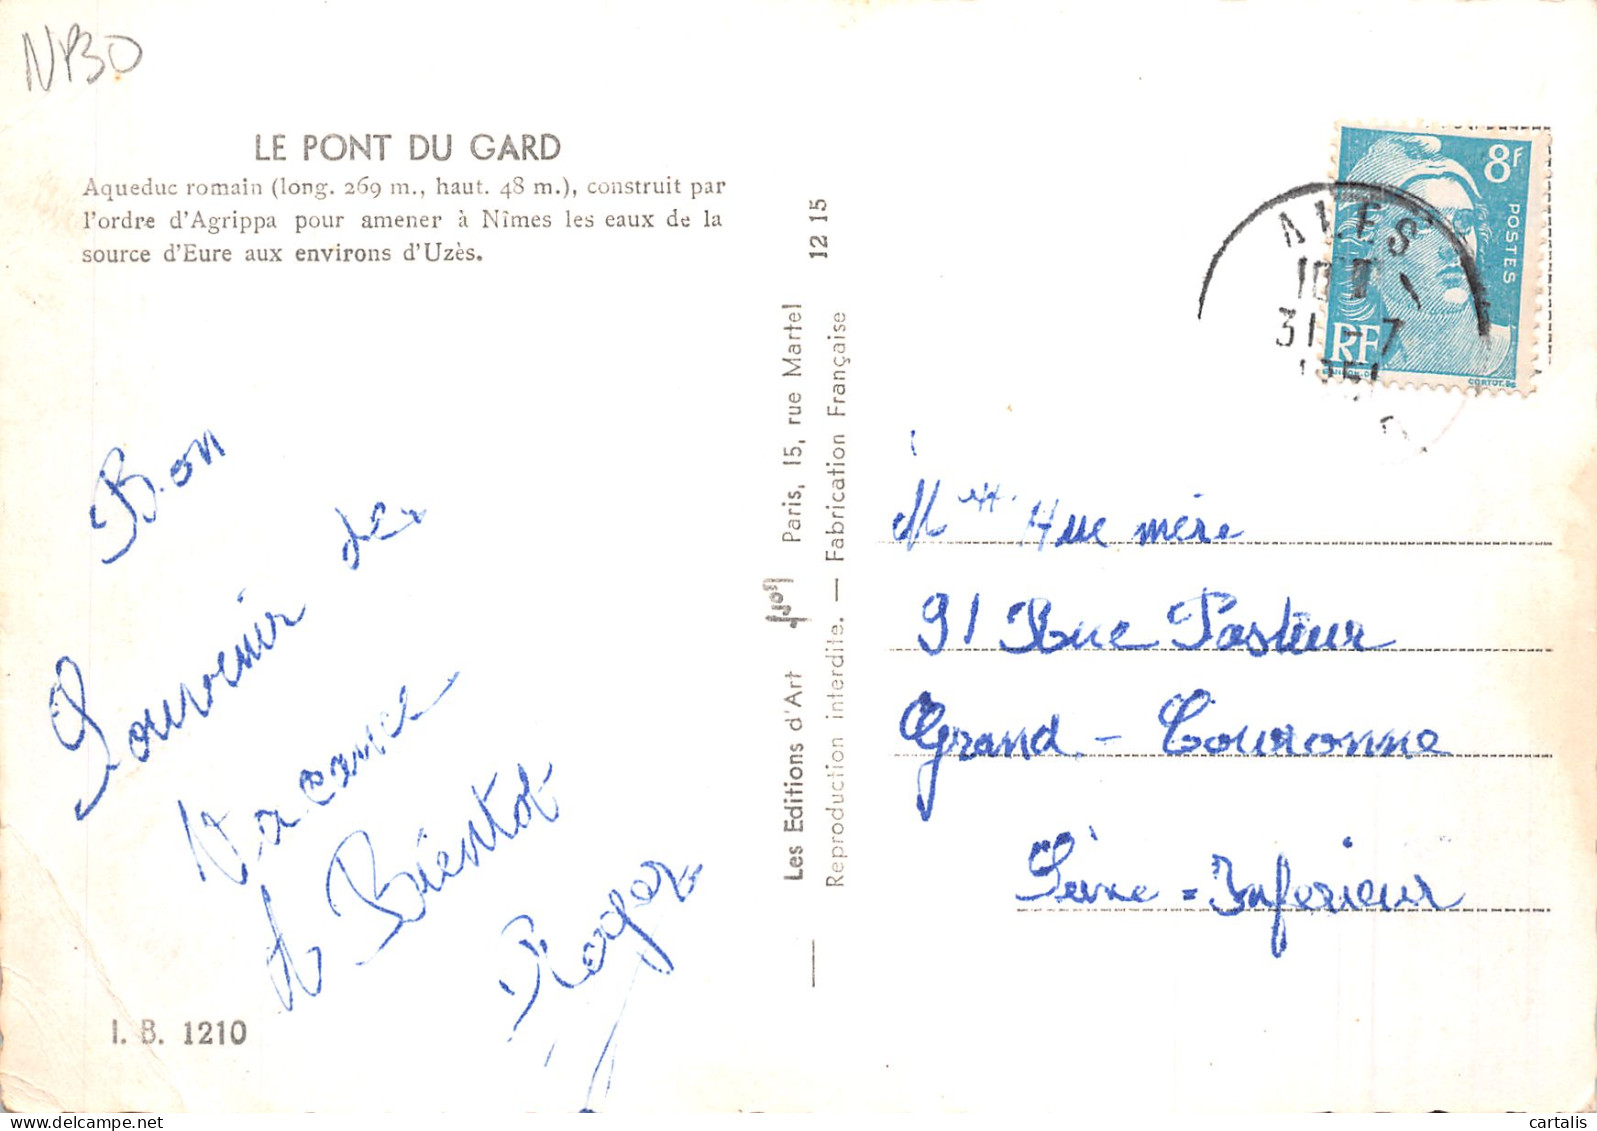 NP30
LE PONT DU GARD
Aqueduc romain (long. 269 m., haut. 48 m.), construit par
l'ordre d'Agrippa pour amener à Nîmes les eaux de la
source d'Eure aux environs d'Uzès.
Bon
Souvenir de
Vacance
A Bientot
Roger
I. B. 1210
Les Editions d'Art Yvon Paris, 15, rue Martel 12 15
Reproduction interdite. — Fabrication Française
8F
POSTES
RF
CORTOT.DEL
31 - 7
1951
Hue mère
91 Rue Pasteur
Grand - Couronne
Seine = Inferieur
cartalis